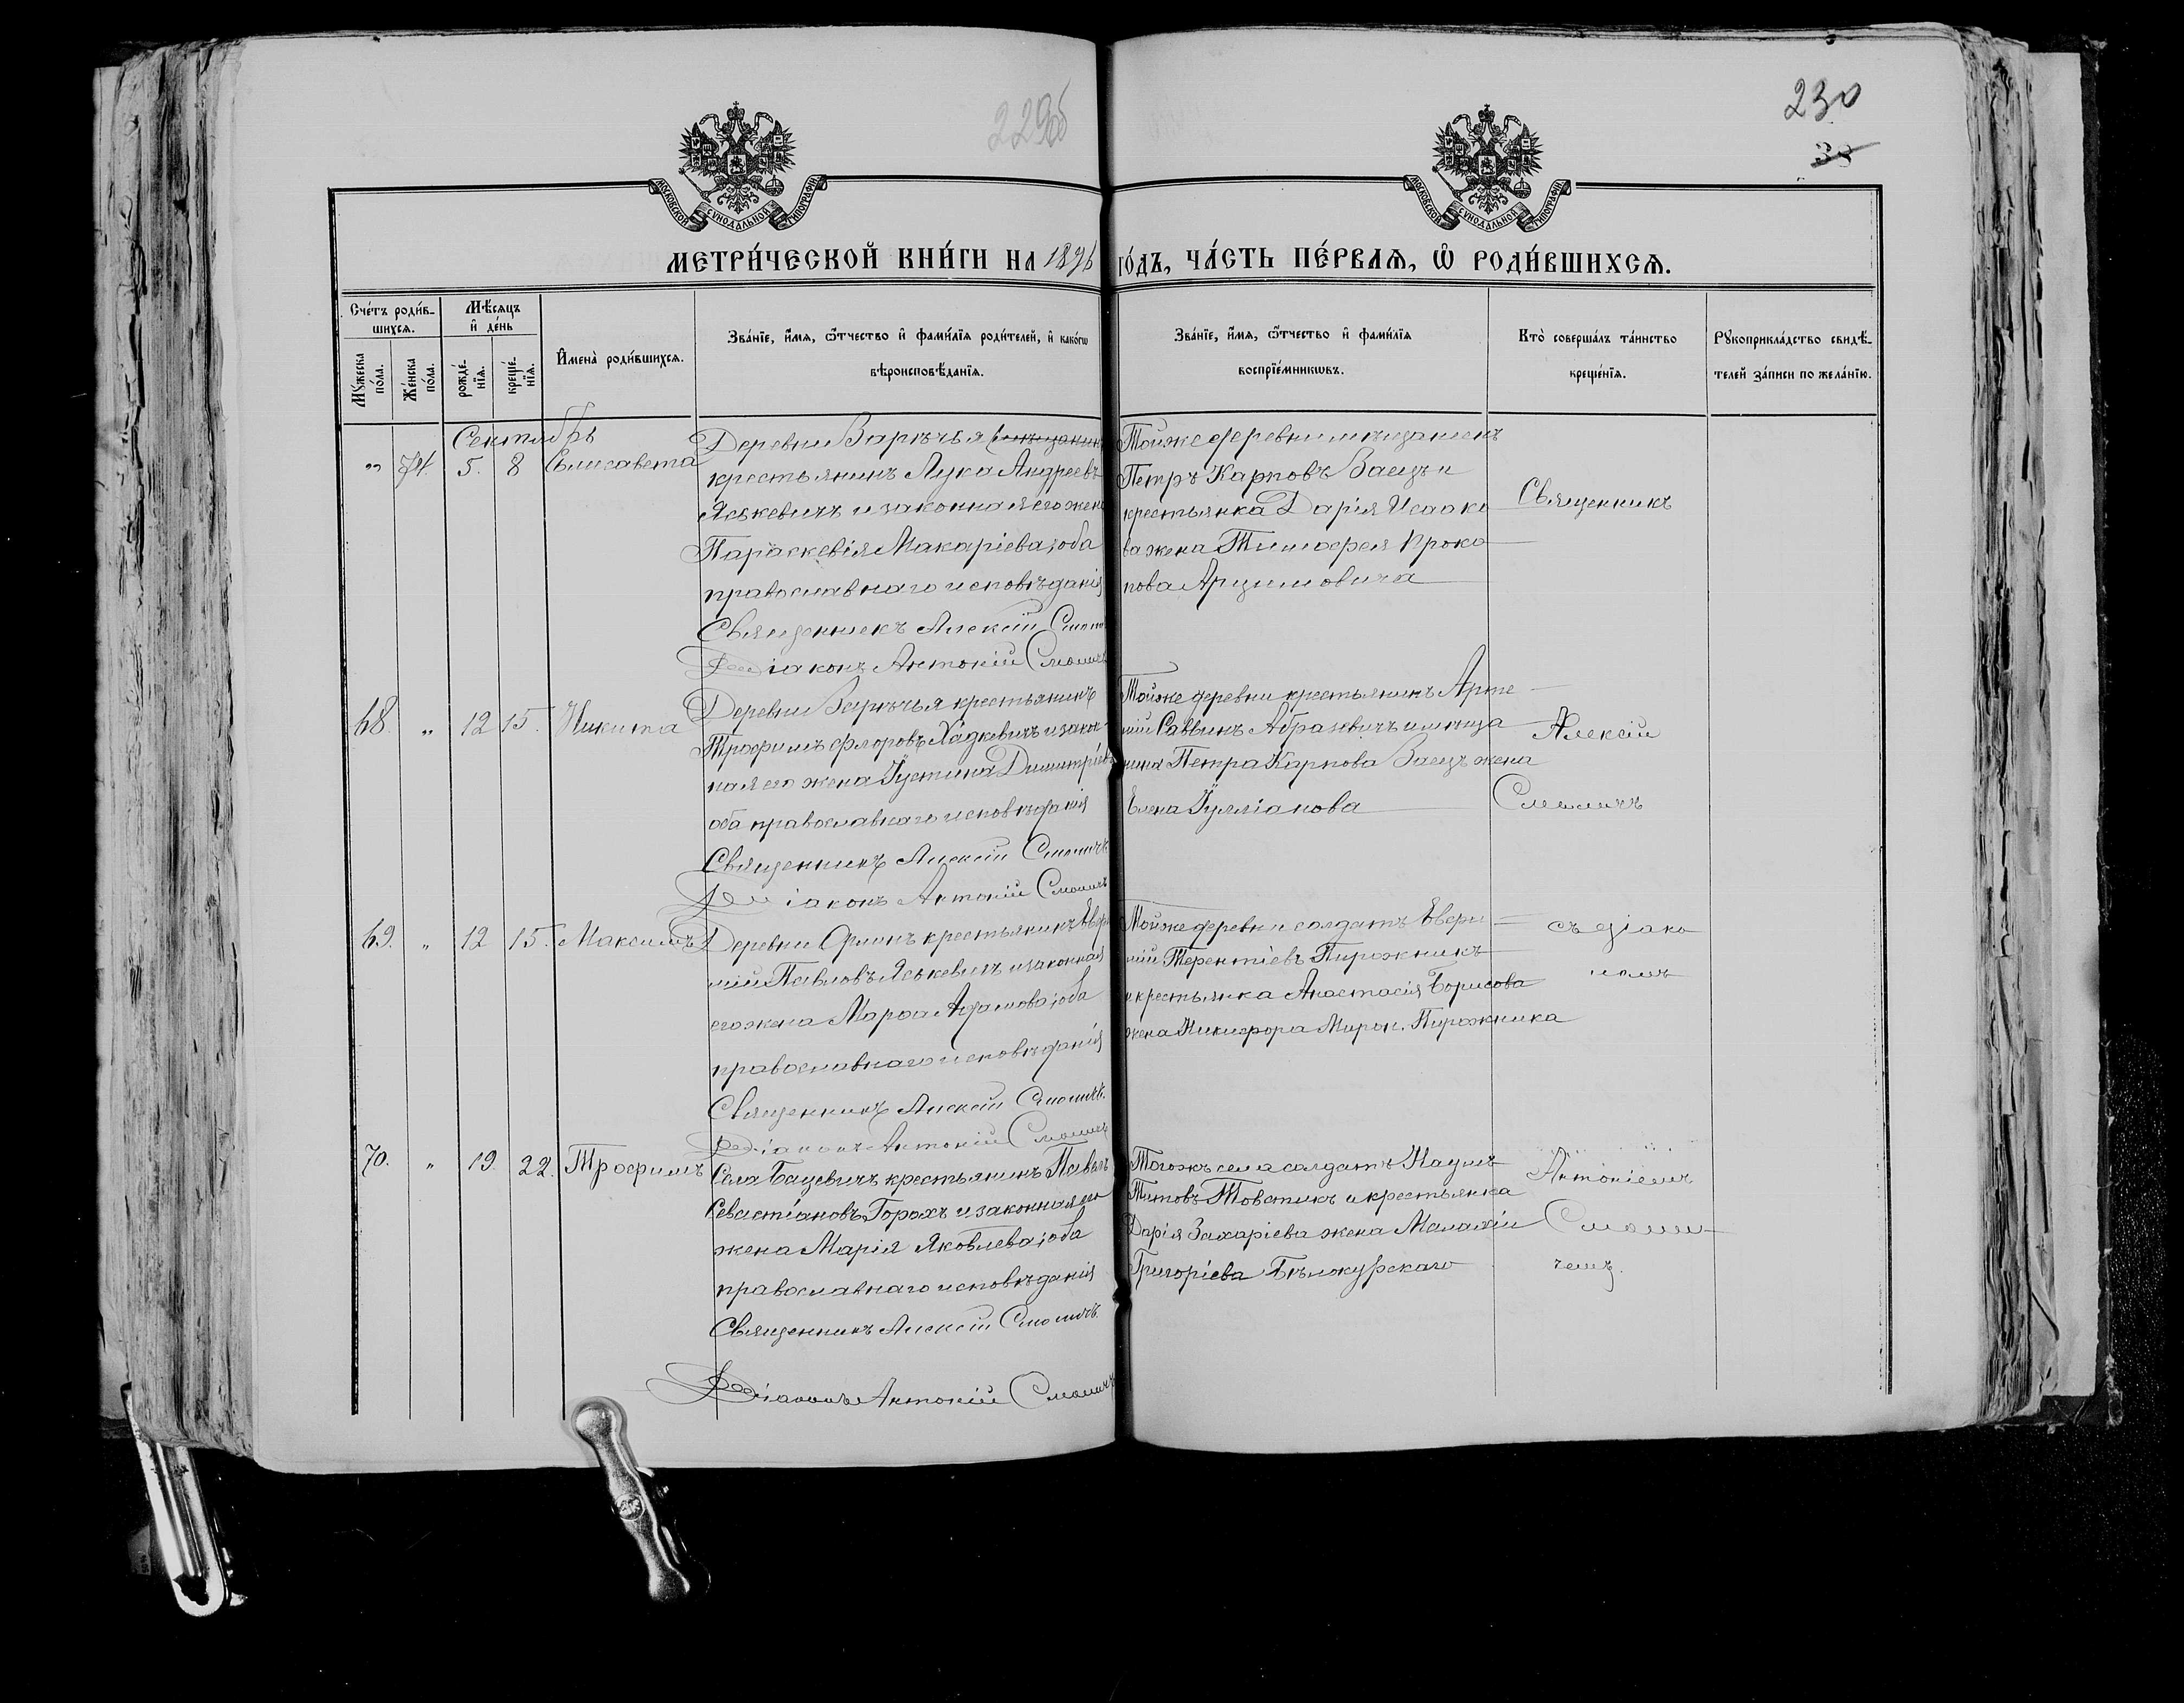 229об
230
38
МОСКОВСКОЙ СѴНОДАЛЬНОЙ ТИПОГРАФІИ
МОСКОВСКОЙ СѴНОДАЛЬНОЙ ТИПОГРАФІИ
МЕТРИ́ЧЕСКОЙ КНИ́ГИ НА 1896 ГО́ДЪ, ЧА́СТЬ ПЕ́РВАѦ, Ѡ҆ РОДИ́ВШИХСѦ.
Сче́тъ роди́в-
шихсѧ.
Мꙋ́жеска по́ла.
Же́нска по́ла.
Мѣ́сѧцъ и҆ де́нь
рожде́-нїѧ.
креще́-нїѧ.
И҆мена̀ роди́вшихсѧ.
Зва́нїе, и҆́мѧ, ѻ҆́тчество и҆ фами́лїѧ роди́телей, и҆ како́гѡ
вѣроисповѣ́данїѧ.
Зва́нїе, и҆́мѧ, ѻ҆́тчество и҆ фами́лїѧ
воспрїе́мникѡвъ.
Кто̀ соверша́лъ та́инство
креще́нїѧ.
Рꙋкоприкла́дство свидѣ́-
телей за́писи по жела́нїю.
Сентябрь
„ 74. 5. 8 Елисавета
Деревни Зарѣчья
крестьянинъ Лука Андреевъ
Яськевичъ и законная его жена
Параскевія Макаріева, оба
православнаго исповѣданія
Священникъ Алексій Смоличъ
Діаконъ Антоній Смоличъ
Тойже деревни мѣщанинъ
Петръ Карповъ Заецъ и
крестьянка Дарія Исаако
ва жена Тимофея Проко
пова Арцимовича
Священникъ
68. „ 12 15. Никита
Деревни Зарѣчья крестьянинъ
Трофимъ Флоровъ Хадкевичъ и закон-
ная его жена Іустина Димитріева
оба православнаго исповѣданія
Священникъ Алексій Смоличъ
Діаконъ Антоній Смоличъ
Тойже деревни крестьянинъ Арте
мій Саввинъ Абразевичъ и мѣща
нина Петра Карпова Заецъ жена
Елена Іулліанова
Алексій
Смоличъ
69. „ 12 15. Максимъ
Деревни крестьянинъ Евфи
мій Павловъ Яськевичъ и законная
его жена Марѳа Адамова, оба
православнаго исповѣданія
Священникъ Алексій Смоличъ.
Діаконъ Антоній Смоличъ
Тойже деревни солдатъ
Терентіевъ Пирожникъ
и крестьянка Анастасія Борисова
жена Никифора Мирон. Пирожника
съ діако
номъ
70. „ 19. 22. Трофимъ
Села Бацевичъ крестьянинъ Павелъ
Севастіановъ Горохъ и законная его
жена Марія Яковлева, оба
православнаго исповѣданія
Священникъ Алексій Смоличъ
Діаконъ Антоній Смоличъ
Тогожъ села солдатъ Наумъ
Титовъ Товстикъ и крестьянка
Дарія Захаріева жена Малахіи
Григоріева Бѣлокурскаго
Антоніемъ
Смоли-
чемъ.